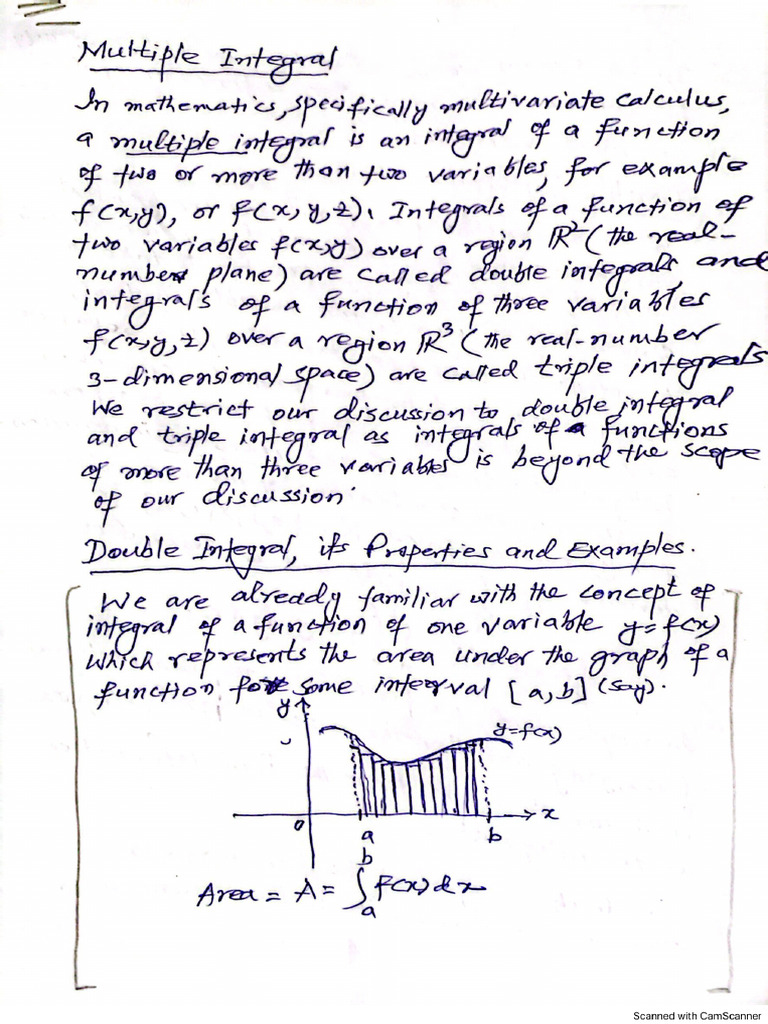 Multiple Integral
In mathematics, specifically multivariate calculus,
a multiple integral is an integral of a function
of two or more than two variables, for example
f(x,y), or f(x,y,z). Integrals of a function of
two variables f(x,y) over a region R² (the real-
number plane) are called double integrals and
integrals of a function of three variables
f(x,y,z) over a region R³ (the real-number
3-dimensional space) are called triple integrals
We restrict our discussion to double integral
and triple integral as integrals of a functions
of more than three variables is beyond the scope
of our discussion.
Double Integral, its Properties and Examples.
We are already familiar with the concept of
integral of a function of one variable y=f(x)
which represents the area under the graph of a
function for some interval [a,b] (say).
y
y=f(x)
o a b x
Area = A = ∫ₐᵇ f(x) dx
Scanned with CamScanner